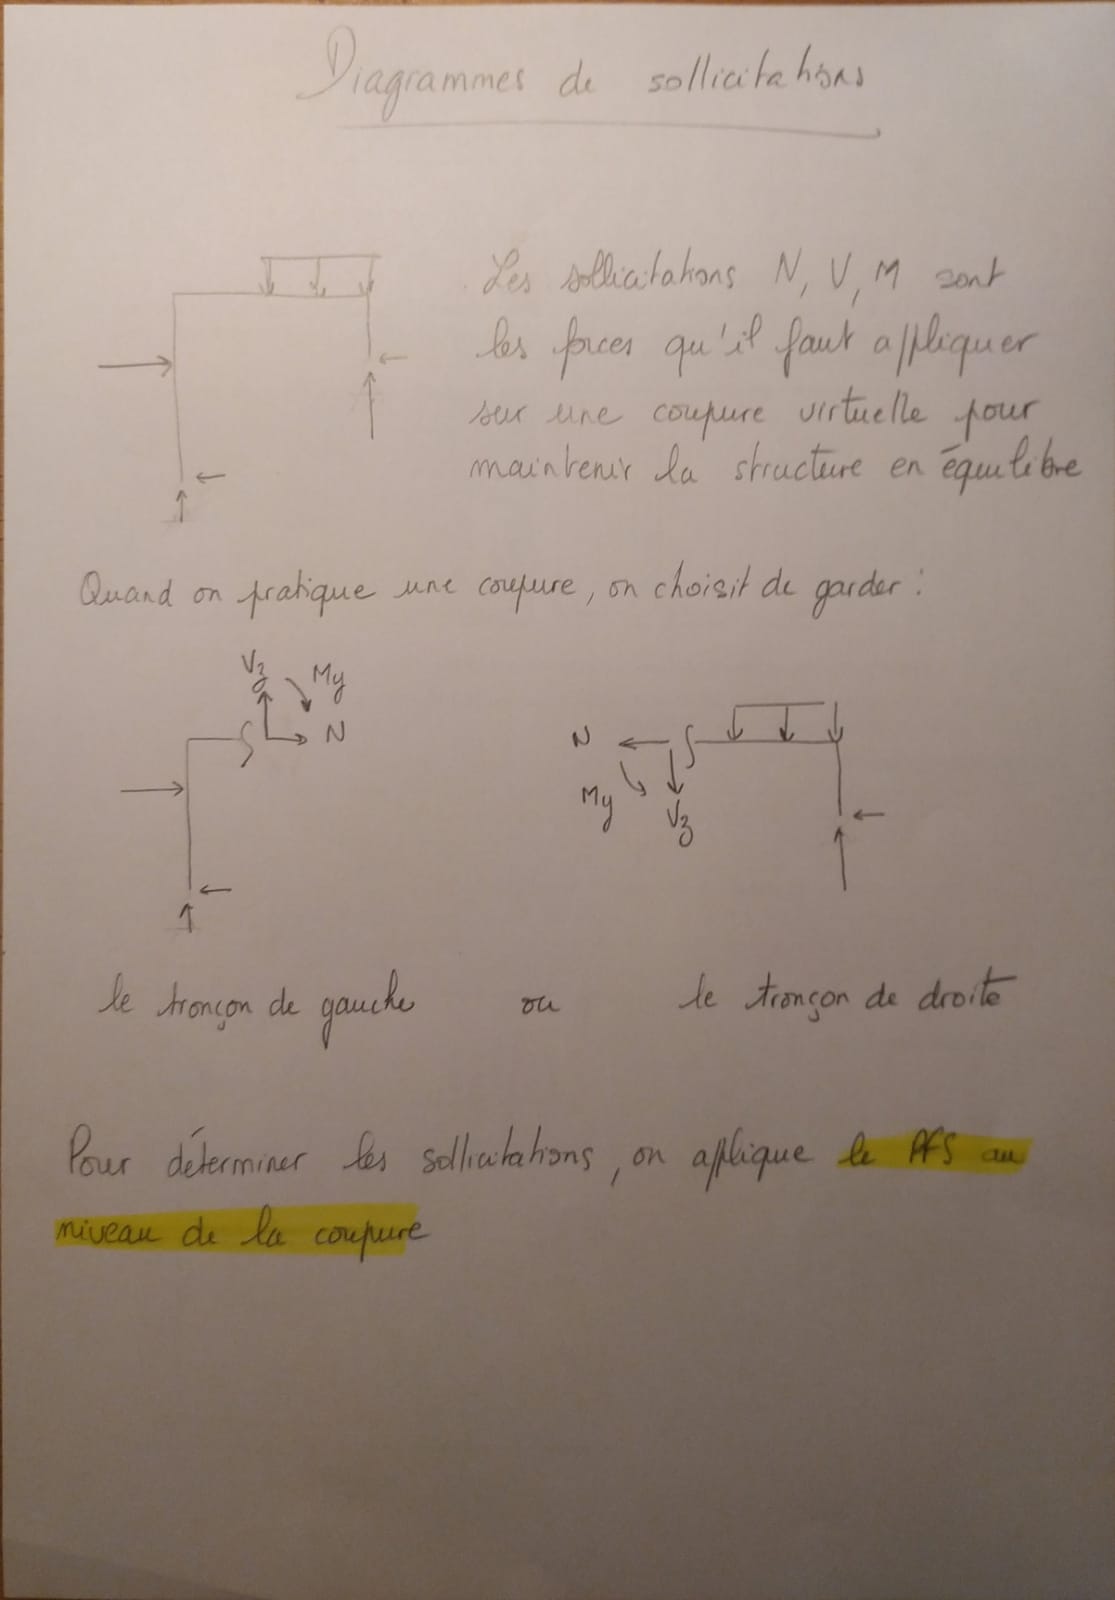 Diagrammes de sollicitations
Les sollicitations N, V, M sont
les forces qu'il faut appliquer
sur une coupure virtuelle pour
maintenir la structure en équilibre
Quand on pratique une coupure, on choisit de garder :
Vz My
N
N
My Vz
le tronçon de gauche ou le tronçon de droite
Pour déterminer les sollicitations, on applique le PFS au
niveau de la coupure